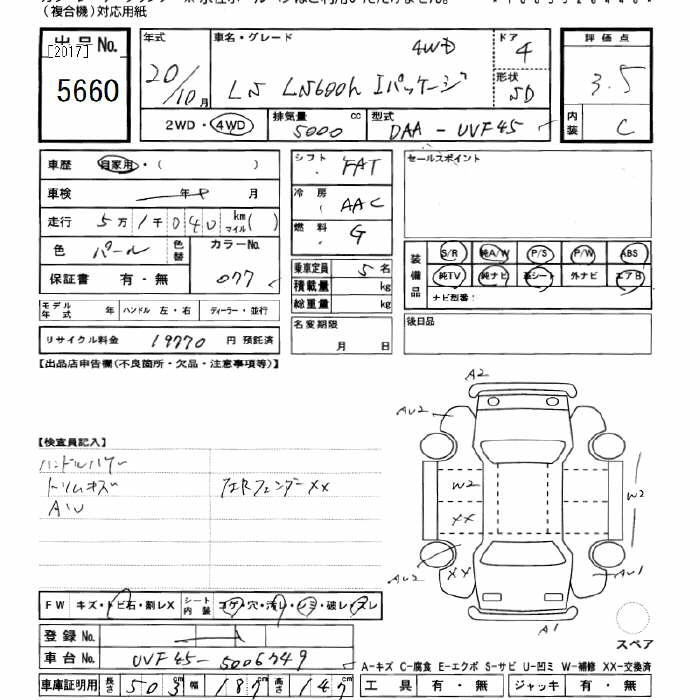 (複合機)対応用紙
出品No.
[2017]
5660
年式
20/10月
車名・グレード
4WD
LS LS600h Iパッケージ
ドア
4
形状
SD
評価点
3.5
内装
C
2WD・4WD
排気量
5000 cc
型式
DAA-UVF45
車歴 自家用・( )
車検 年 月
走行 5万1千040 km マイル( )
色 パール 色替 カラーNo. 077
保証書 有・無
シフト FAT
冷房 AAC
燃料 G
乗車定員 5名
積載量 kg
総重量 kg
セールスポイント
装備品
S/R 純A/W P/S P/W ABS
純TV 純ナビ 革シート 外ナビ エアB
ナビ型番:
モデル年式 年 ハンドル 左・右 ディーラー・並行
リサイクル料金 19770 円 預託済
名変期限 月 日
後日品
【出品店申告欄(不良箇所・欠品・注意事項等)】
【検査員記入】
ハンドルハゲ
トリムキズ
AW
左Rフェンダー××
A2
AU2
W2
××
W2
AU2
××
AU1
A1
スペア
FW キズ・トビ石・割レX シート内装 コゲ・穴・汚レ・シミ・破レ・スレ
登録No.
車台No. UVF45-5006749
A-キズ C-腐食 E-エクボ S-サビ U-凹ミ W-補修 XX-交換済
車庫証明用 長さ 503cm 幅 187cm 高さ 147cm
工具 有・無 ジャッキ 有・無